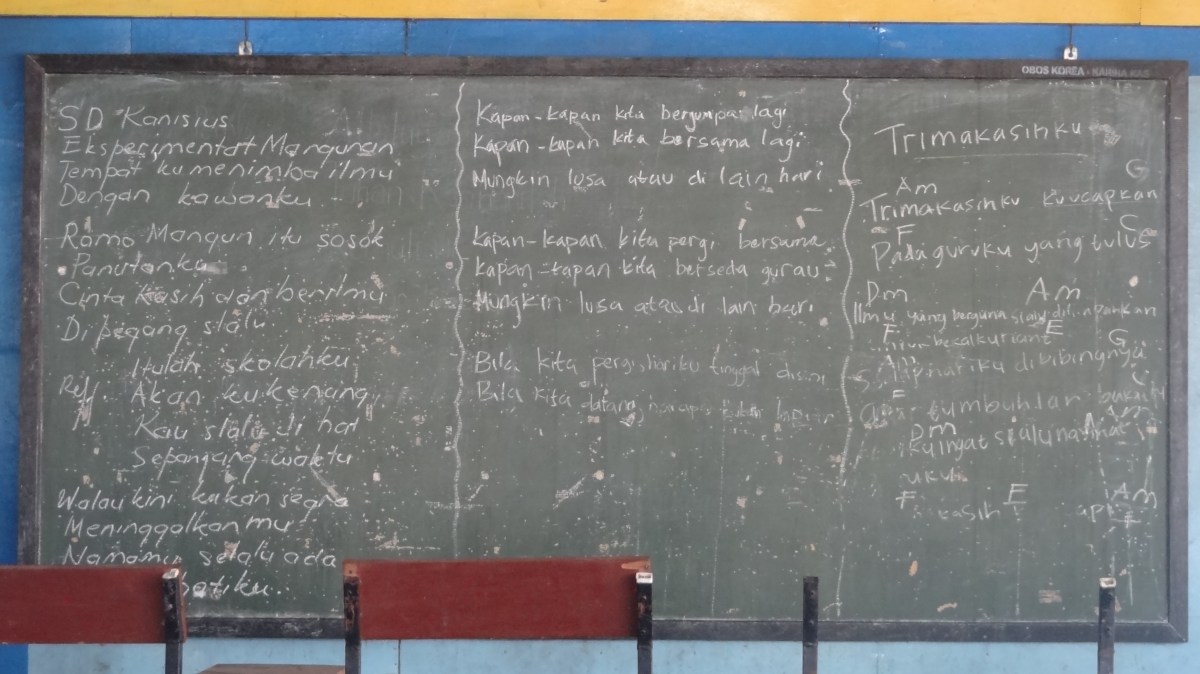 OBOS KOREA - KARMA KAS
SD Kanisius
Eksperimental Mangunan
Tempat ku menimba ilmu
Dengan kawanku
Romo Mangun itu sosok
Panutanku
Cinta kasih dan berilmu
Di pegang slalu
Itulah skolahku
Reff. Akan ku kenang
Kau slalu di hati
Sepanjang waktu
Walau kini kukan segra
Meninggalkanmu
Namamu selalu ada
hatiku
Kapan-kapan kita berjumpa lagi
Kapan-kapan kita bersama lagi
Mungkin lusa atau di lain hari
Kapan-kapan kita pergi bersama
Kapan-kapan kita berseda gurau
Mungkin lusa atau di lain hari
Bila kita pergi, hariku tinggal disini
Bila kita datang
Trimakasihku
Am G
Trimakasihku kuucapkan
F C
Pada guruku yang tulus
Dm Am
Ilmu yang berguna slalu
F E
bekalku
Am G
hariku dibibingnya
F C
tumbuhlah
Dm Am
kuingat slalu
F E Am
kasih